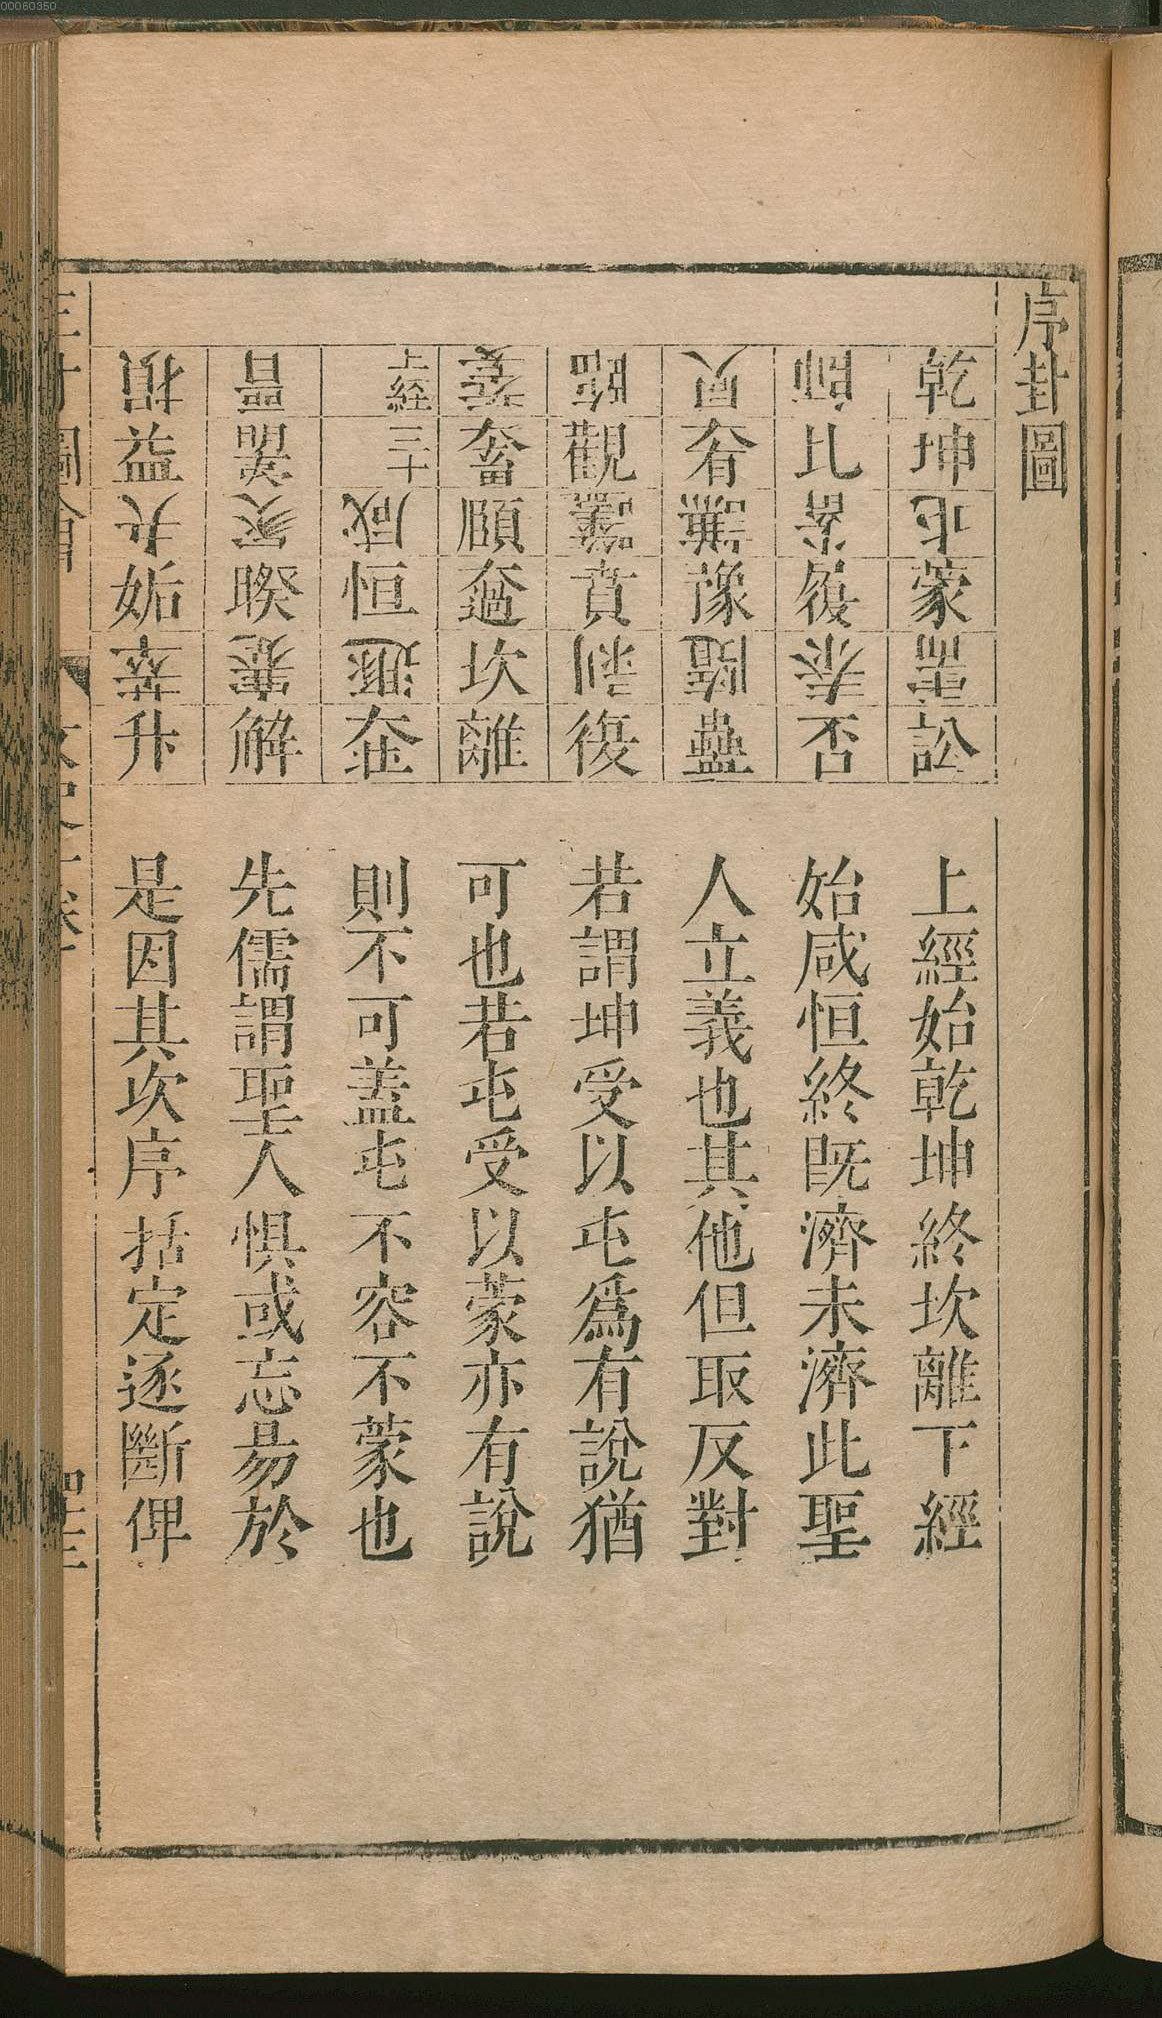 00060350
序卦圖
乾坤屯蒙需訟
師比畜履泰否
同人大有謙豫隨蠱
臨觀噬嗑賁剝復
无妄大畜頤大過坎離
上經三十咸恒遯大壯
晋明夷家人睽蹇解
損益夬姤萃升
上經始乾坤終坎離下經
始咸恒終既濟未濟此聖
人立義也其他但取反對
若謂坤受以屯爲有說猶
可也若屯受以蒙亦有說
則不可蓋屯不容不蒙也
先儒謂聖人惧或忘昜於
是因其次序括定逐斷俾